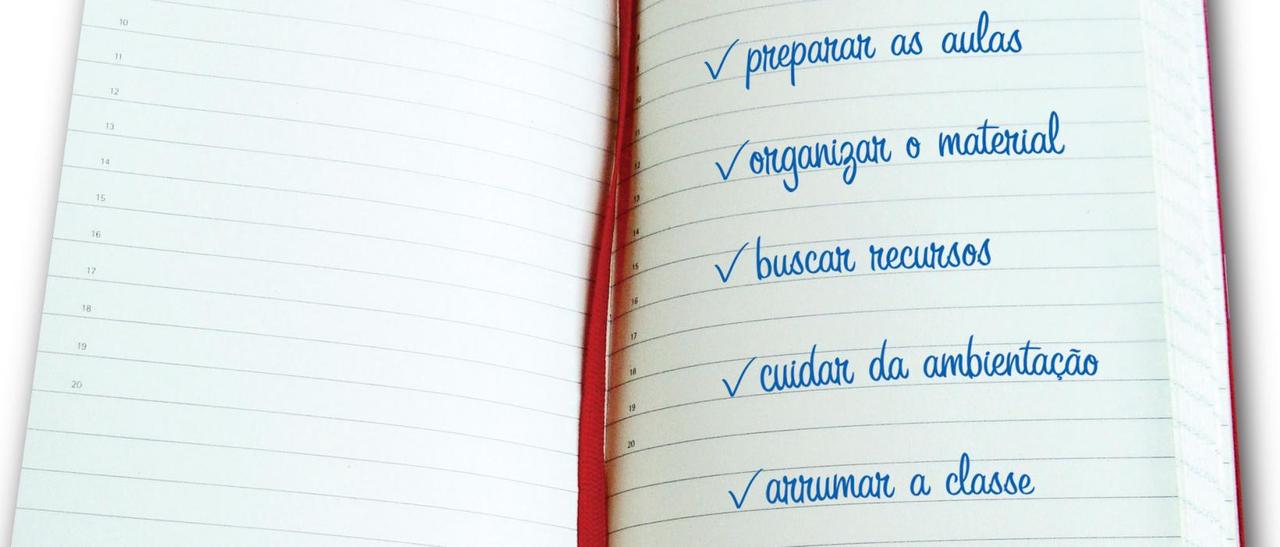 10
11
12
13
14
15
16
17
18
19
20
✓ preparar as aulas
9
10
11
✓ organizar o material
12
13
14
✓ buscar recursos
15
16
17
✓ cuidar da ambientação
18
19
20
✓ arrumar a classe